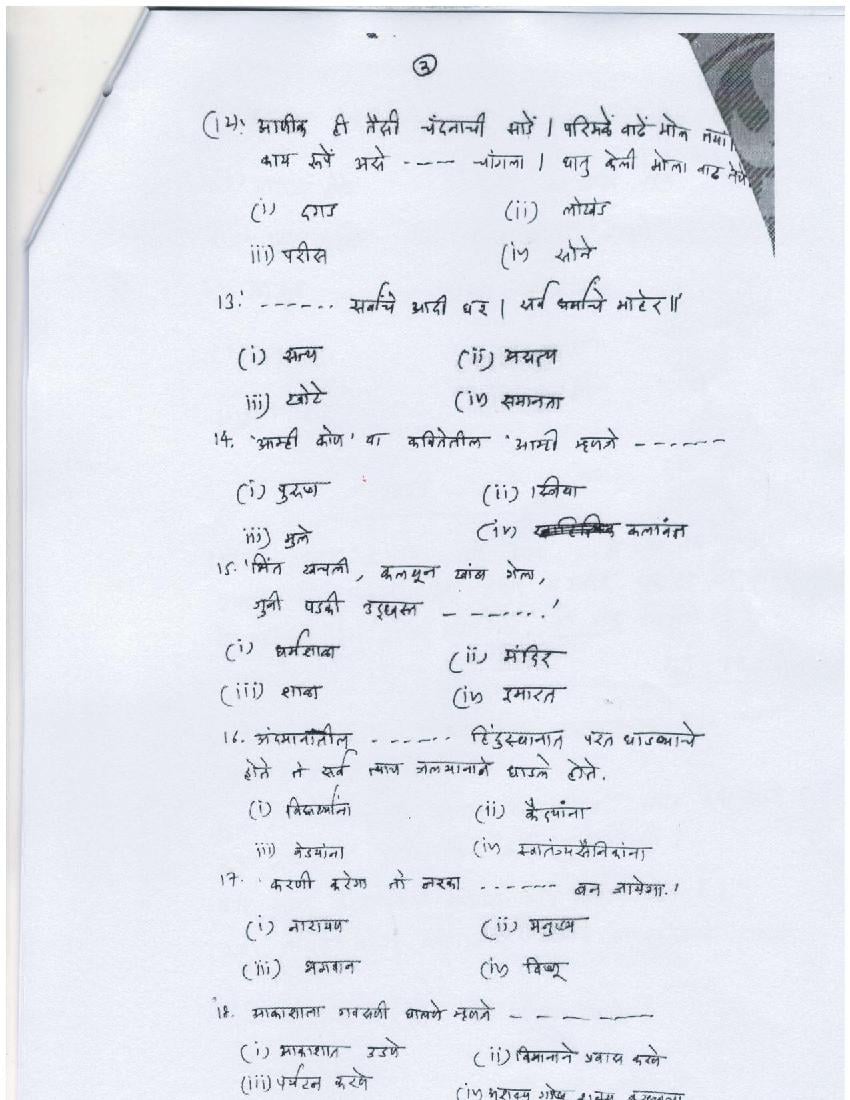 ३
(12). आणीक ही तैसी चंदनाची झाडें । परिमळें वाढें मोल तयां।
काय रूपें असे ---- चांगला । धातु केली मोला वाढ तेणे
(i) दगड (ii) लोखंड
iii) परीस (iv) सोने
13. ------ सर्वांचे आदी घर । सर्व धर्मांचे माहेर॥
(i) सत्य (ii) असत्य
iii) खोटे (iv) समानता
14. 'आम्ही कोण' या कवितेतील 'आम्ही म्हणजे ------
(i) पुरूष (ii) स्त्रिया
iii) मुले (iv) कलावंत
15. 'भिंत खचली, कलथून खांब गेला,
जुनी पडकी उद्ध्वस्त - - -....'
(i) धर्मशाळा (ii) मंदिर
(iii) शाळा (iv) इमारत
16. अंदमानातील ------ हिंदुस्थानात परत धाडव्याचे
होते ते सर्व त्याच जलयानाने धाडले होते.
(i) विद्यार्थ्यांना (ii) कैद्यांना
iii) वेड्यांना (iv) स्वातंत्र्यसैनिकांना
17. 'करणी करेगा तो नरका ------- बन जायेगा.'
(i) नारायण (ii) मनुष्य
(iii) भगवान (iv) विष्णू
18. आकाशाला गवसणी घालणे म्हणजे - - - - - -
(i) आकाशात उडणे (ii) विमानाने प्रवास करणे
(iii) पर्यटन करणे (iv) गोष्ट शक्य